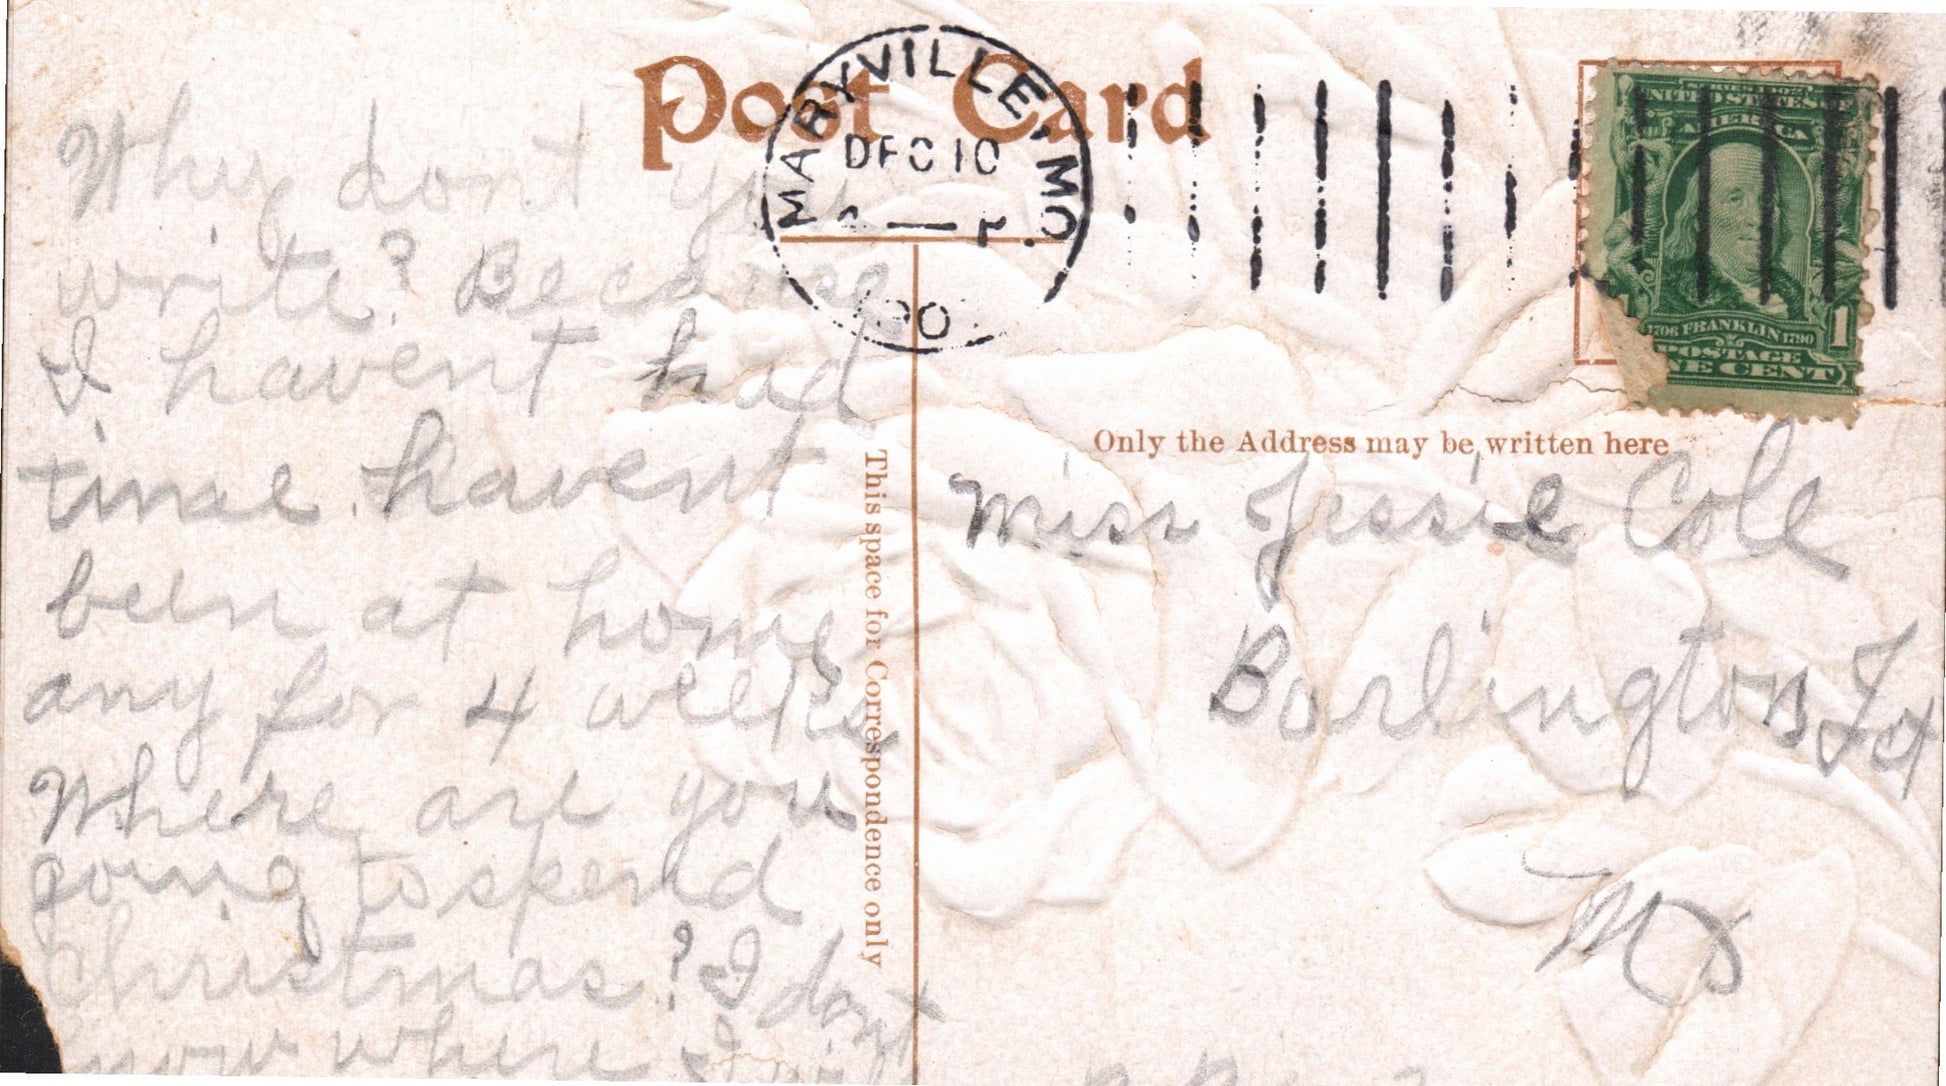 Post Card
MARYVILLE, MO.
DEC 10
SERIES 1902
UNITED STATES OF
AMERICA
1706 FRANKLIN 1790
1
POSTAGE
ONE CENT
Only the Address may be written here
This space for Correspondence only
Why dont you
write? Because
I havent had
time. havent
been at home
any for 4 weeks
Where are you
going to spend
Christmas? I dont
know where I will
Miss Jessie Cole
Burlington Jct
Mo